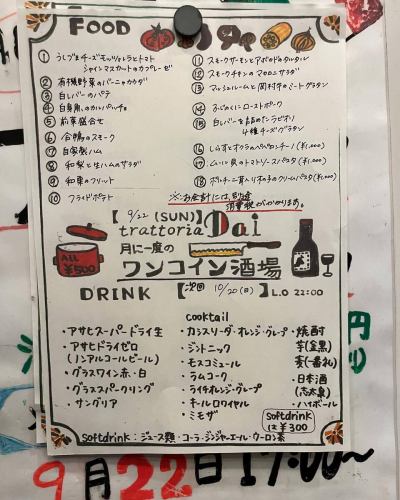 FOOD
① うしづまチーズモッツァレラとトマト
シャインマスカットのカプレーゼ
② 有機野菜のバーニャカウダ
③ 白レバーのパテ
④ 白身魚のカルパッチョ
⑤ 前菜盛合せ
⑥ 合鴨のスモーク
⑦ 自家製ハム
⑧ 和梨と生ハムのサラダ
⑨ 和栗のフリット
⑩ フライドポテト
⑪ スモークサーモンとアボカドのタルタル
⑫ スモークチキンのマカロニサラダ
⑬ マッシュルームと岡村牛のミートグラタン
⑭ ふじのくにローストポーク
⑮ 白レバーを詰めたラビオリ
4種チーズグラタン
⑯ しらすとオクラのペペロンチーノ(¥1,000)
⑰ ムール貝のトマトソースパスタ(¥1,000)
⑱ ポルチーニ茸入り木の子のクリームパスタ(¥1,000)
※お会計には、別途
消費税がかかります。
【9/22(SUN)】
trattoria Dai
月に一度の
ワンコイン酒場
ALL
¥500
DRINK
【次回 10/20(日)】L.O 22:00
・アサヒスーパードライ生
・アサヒドライゼロ
(ノンアルコールビール)
・グラスワイン赤・白
・グラススパークリング
・サングリア
cocktail
・カシスソーダ・オレンジ・グレープ
・ジントニック
・モスコミュール
・ラムコーク
・ライチオレンジ・グレープ
・キールロワイヤル
・ミモザ
・焼酎
芋(金黒)
麦(一番札)
・日本酒
(志太泉)
・ハイボール
softdrink
は¥300
softdrink:ジュース類・コーラ・ジンジャーエール・ウーロン茶
9月22日 17:00〜